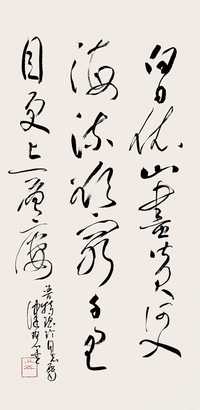 白日依山尽黄河入
海流欲穷千里
目更上一层楼